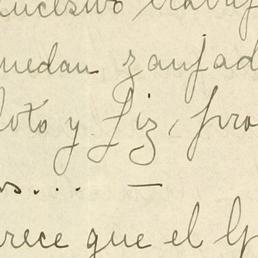 quedan zanjad
loto y Liz, pro
os... —
rece que el G